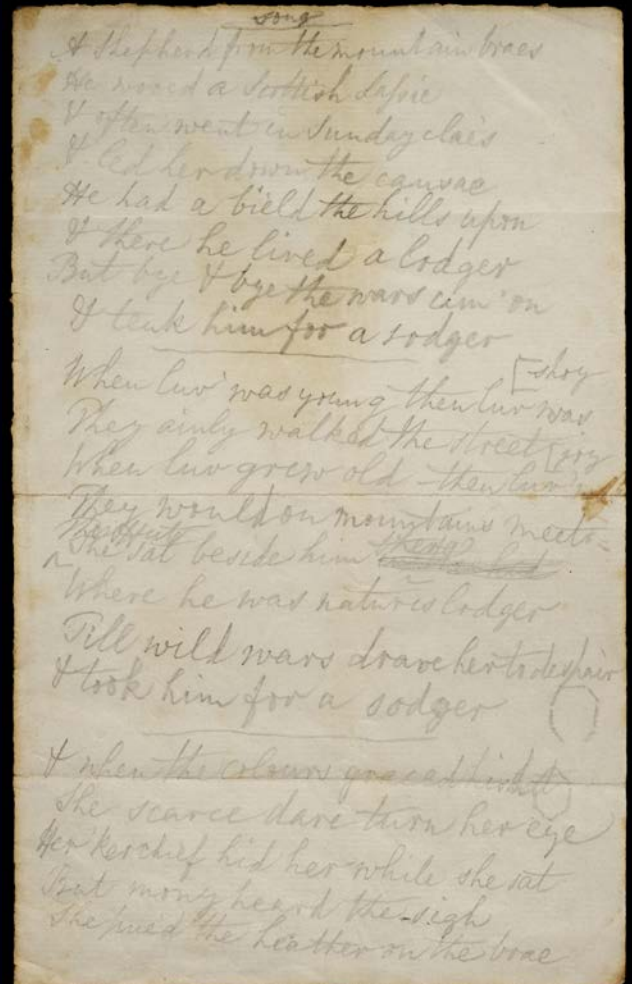 song
A Shepherd from the mountain braes
He wooed a Scottish Lassie
& often went in Sunday claes
& led her down the causae
He had a bield the hills upon
& there he lived a lodger
But bye & bye the wars cum' on
& teuk him for a sodger
When luv' was young then luv was [shoy
They ainly walked the street
When luv grew old then luv [joy
They would on mountains meet
She sat beside him
Where he was natures lodger
Till wild wars drave her to despair
& took him for a sodger
& when the colours graced his hat
She scarce dare turn her eye
Her kerchief hid her while she sat
But mony heard the sigh
She pued the heather on the brae